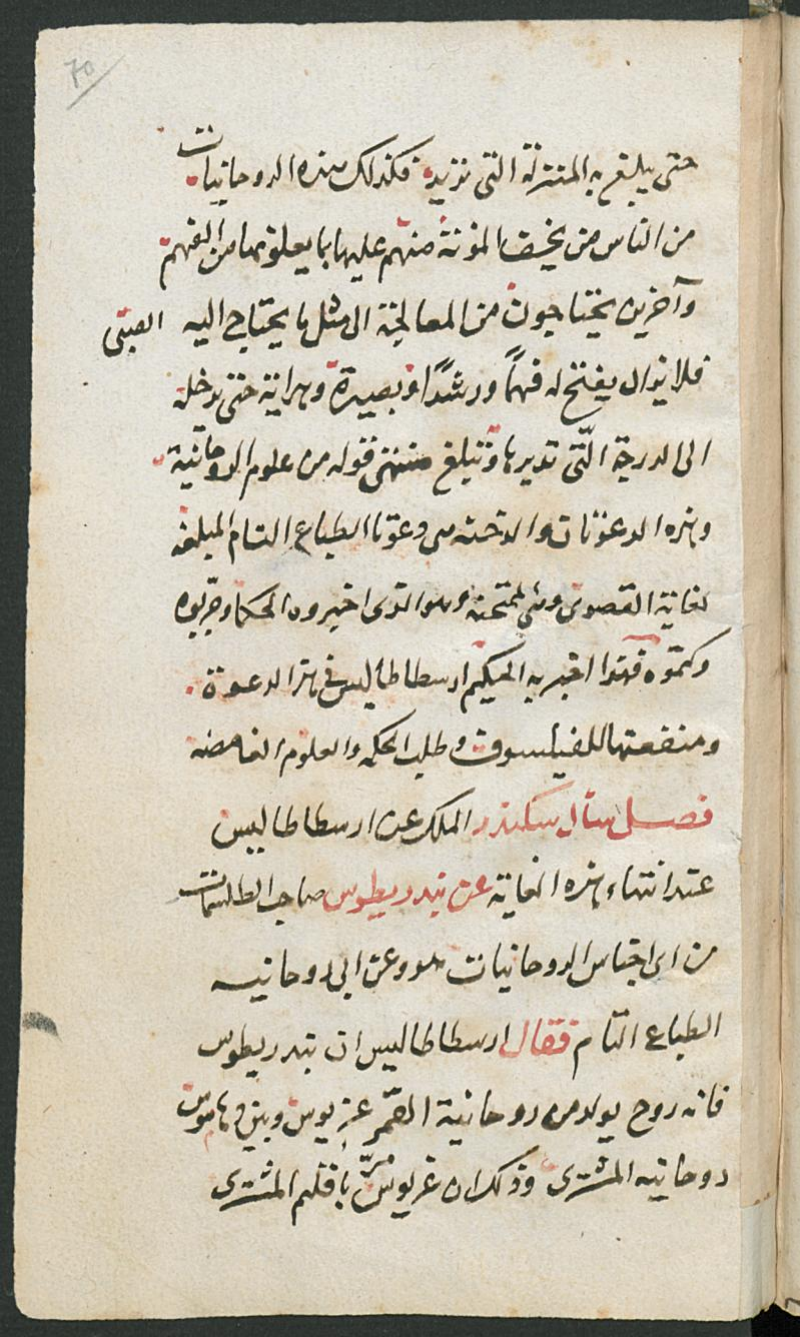 70
حتى يبلغ به المنزلة التى تزيد فكذلك هذه الروحانيات
من الناس من يخف المؤنة منهم عليها بما يعلونها من الفهم
وآخرين يحتاجون من المعالجة الى مثل ما يحتاج اليه الصبى
فلا يزال يفتح له فهمًا ورشدًا وبصيرة وهداية حتى يدخله
الى الدرجة الّتى تديرها وتبلغ منتهى قوله من علوم الروحانية
وهذه الدعوتان والدخنه دعوتا الطباع التام المبلغه
لغاية القصوى وهى الممتحنه وهو الذى اخبروه الحكما وجربوه
وكتموه فهذا اخبر به الحكيم ارسطاطاليس فى هذا الدعوة
ومنفعتها للفيلسوف وطلب الحكمه والعلوم الغامضه
فصل سئال سكندر الملك عن ارسطاطاليس
عند انتهاء هذه الغاية عن تيدريطوس صاحب الطلسمات
من اى اجناس الروحانيات هو وعن اى روحانيه
الطباع التام فقال ارسطاطاليس ان تيدريطوس
فانه روح يولد من روحانية القمر غريوس وبين دهاموس
روحانيه المشترى وذلك ان غريوس باقليم المشترى